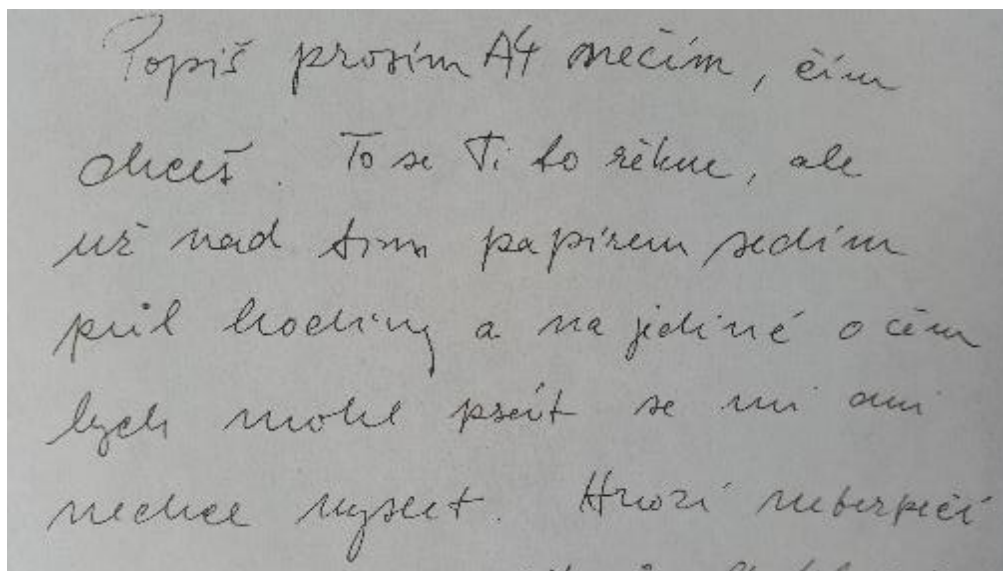 Popiš prosím A4 něčím, čím
chceš. To se Ti to řekne, ale
už nad tím papírem sedím
půl hodiny a na jediné o čem
bych mohl psát se mi ani
nechce myslet. Hrozí nebezpečí